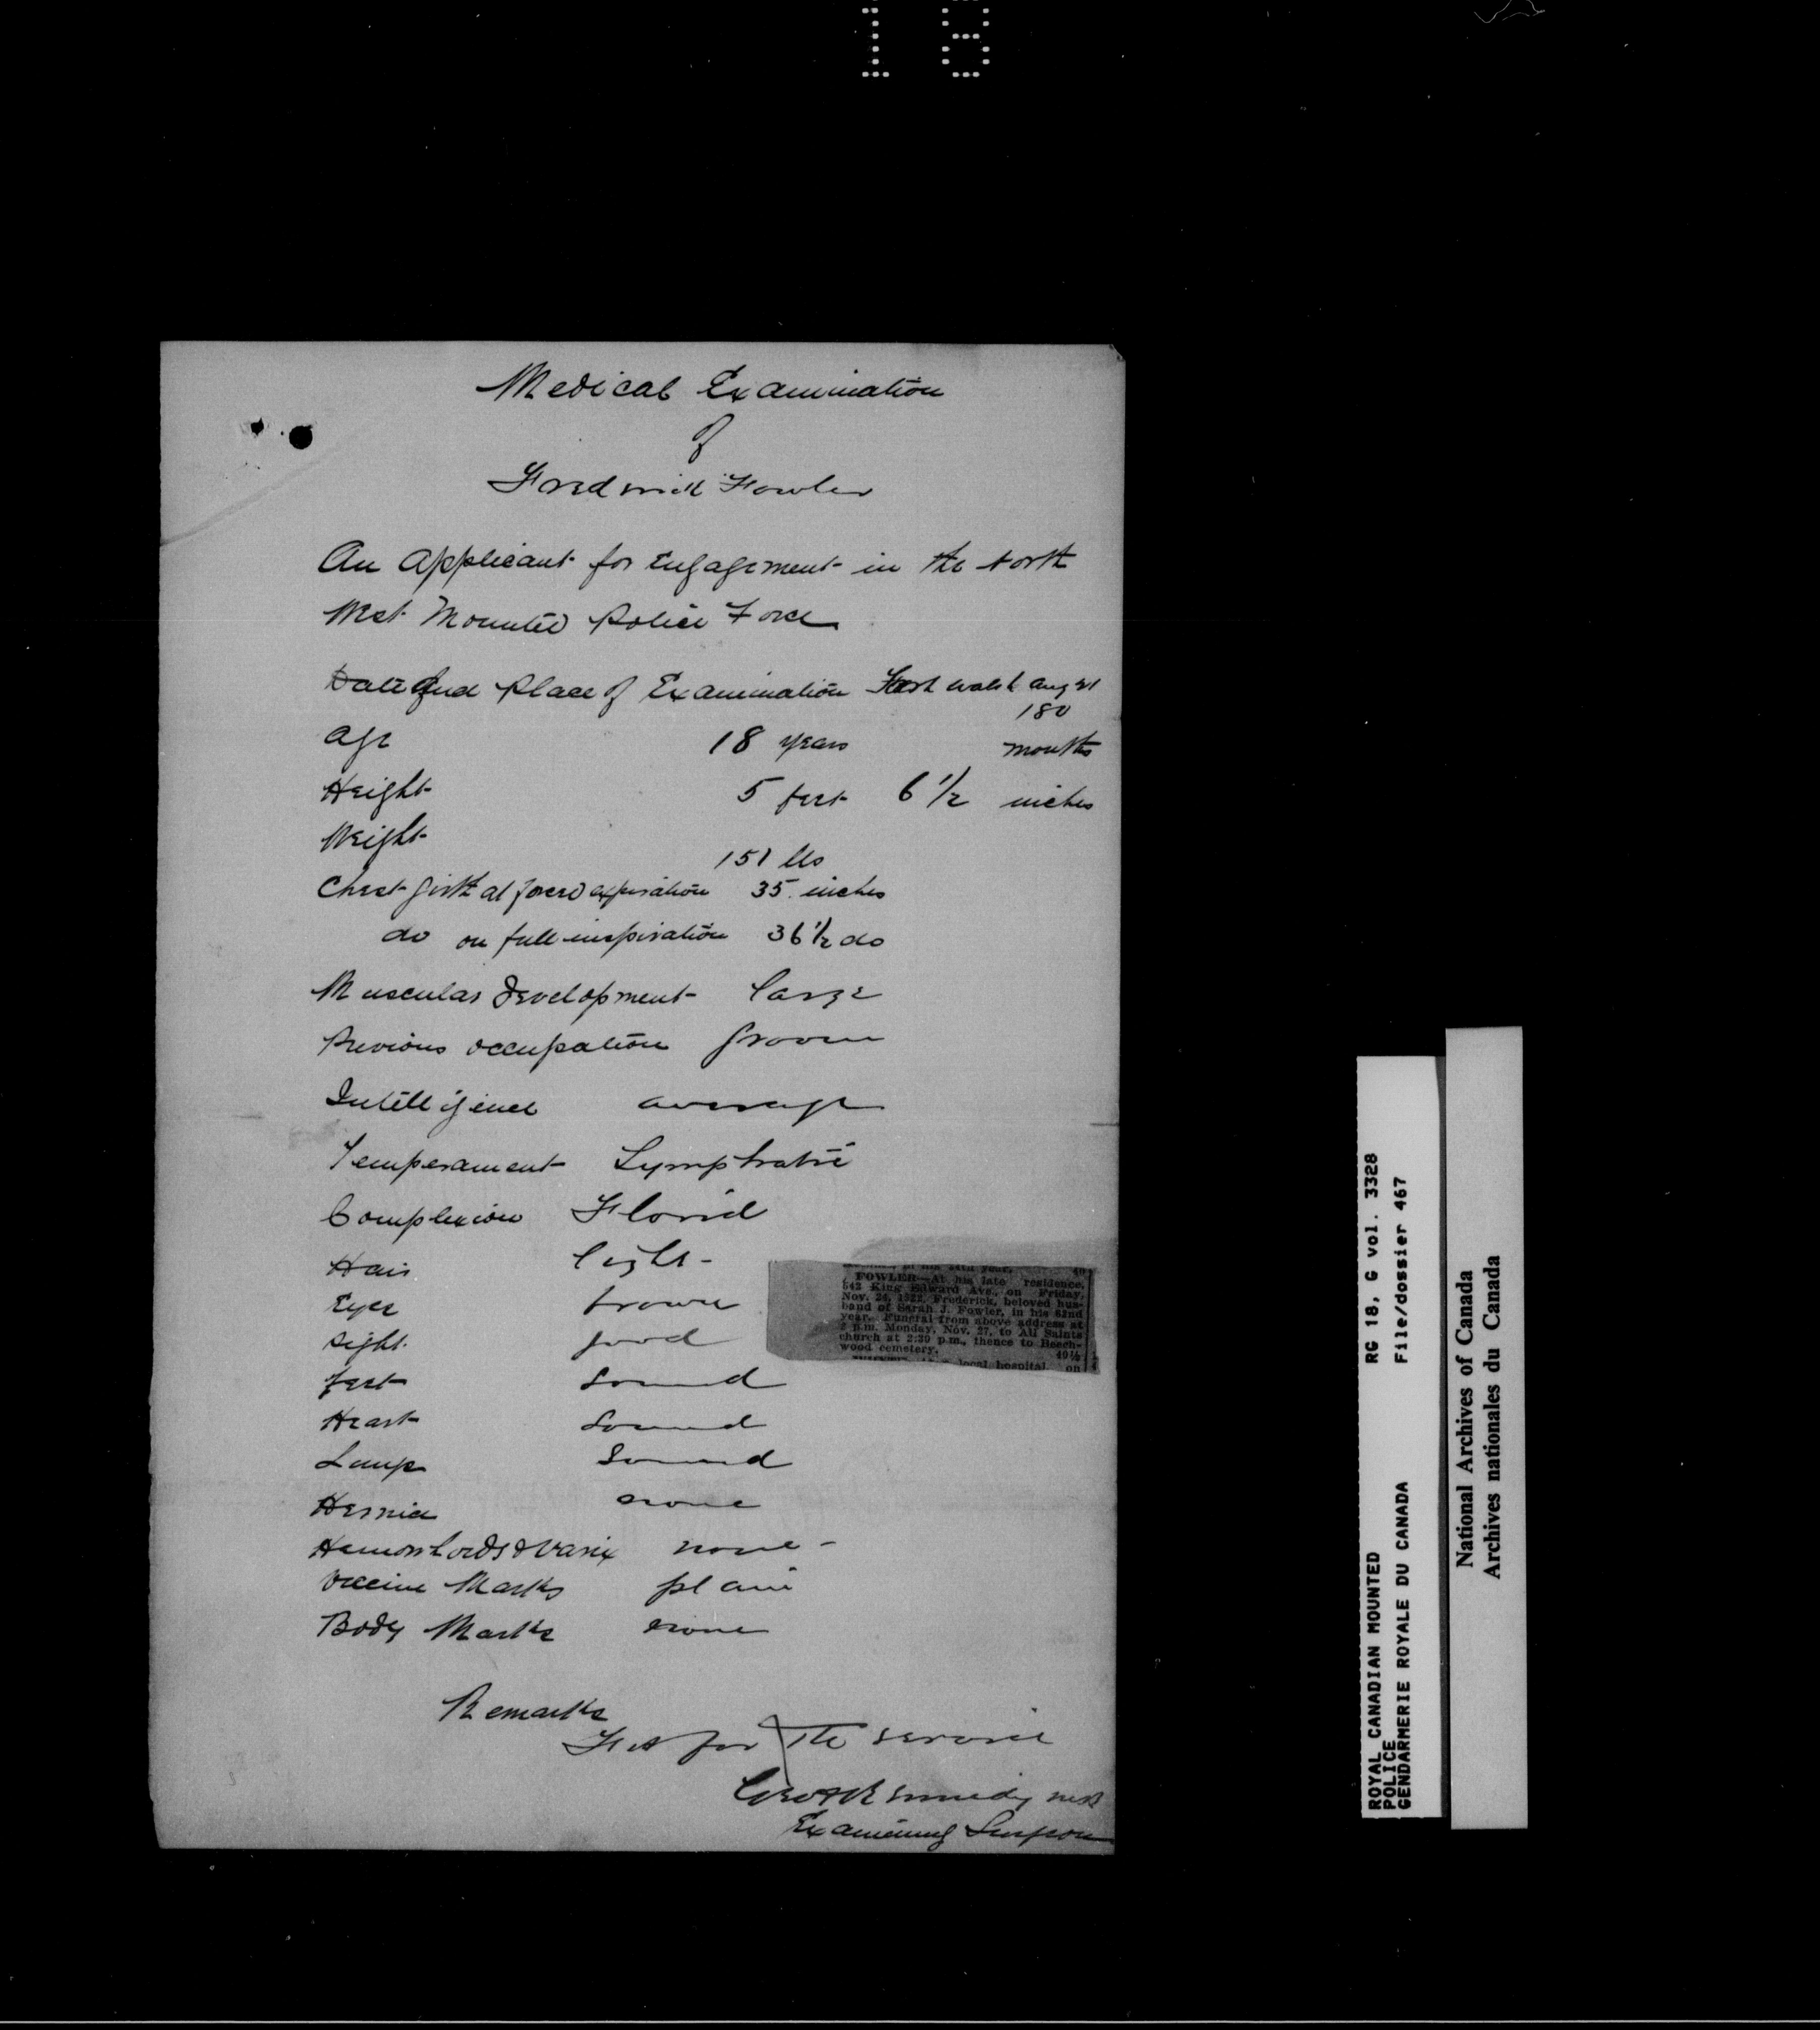 18
Medical Examination
of
Frederick Fowler
An Applicant for Engagement in the North
West Mounted Police Force
Date and Place of Examination Fort Walsh Aug 21
180
Age 18 years months
Height 5 feet 6 1/2 inches
Weight
151 lbs
Chest girth at forced expiration 35 inches
do on full inspiration 36 1/2 do
Muscular Development large
Previous occupation groom
Intelligence average
Temperament Lymphatic
Complexion Florid
Hair light -
Eyes brown
Sight good
Feet Sound
Heart Sound
Lungs Sound
Hernia none
Hemorrhoids & Varix none -
Vaccine Marks plain
Body Marks none
Remarks
Fit for the service
Geo A Kennedy MD
Examining Surgeon
FOWLER—At his late residence,
542 King Edward Ave., on Friday,
Nov. 24, 1922, Frederick, beloved hus-
band of Sarah J. Fowler, in his 62nd
year. Funeral from above address at
2 p.m. Monday, Nov. 27, to All Saints
church at 2:30 p.m., thence to Beech-
wood cemetery.
local hospital, on
ROYAL CANADIAN MOUNTED RG 18, G vol. 3328
POLICE
GENDARMERIE ROYALE DU CANADA File/dossier 467
National Archives of Canada
Archives nationales du Canada